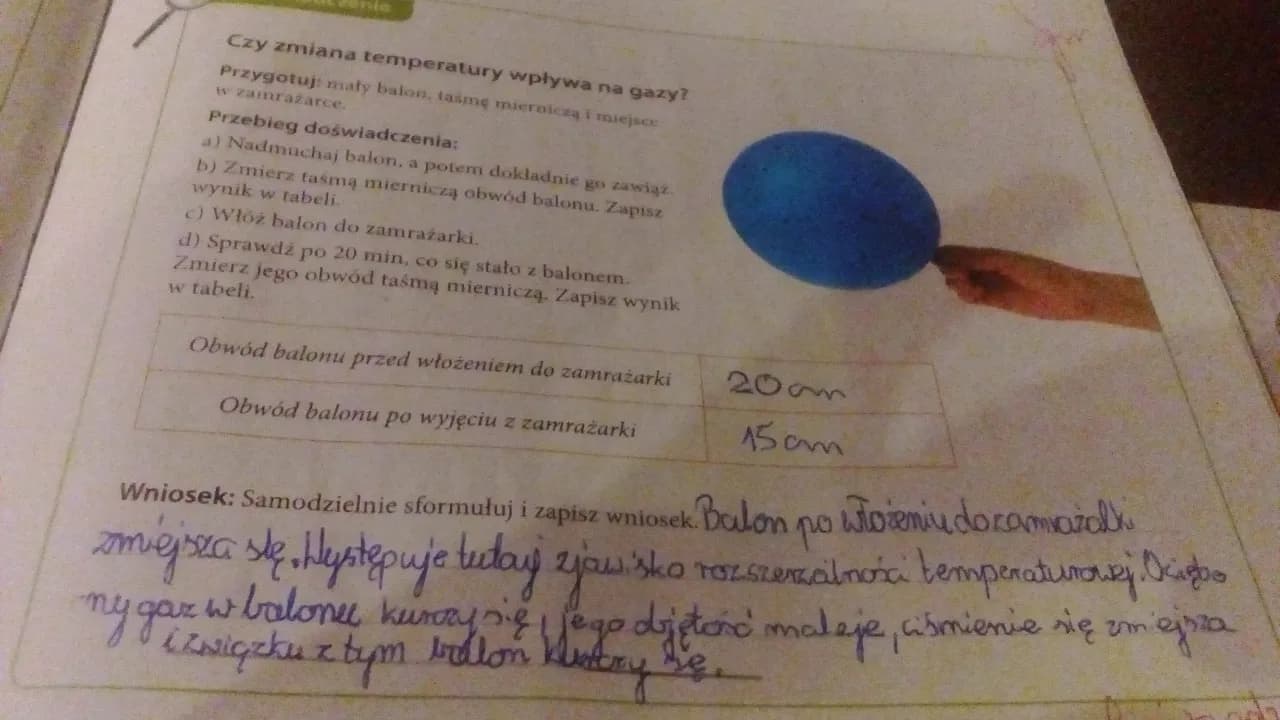 Czy zmiana temperatury wpływa na gazy?
Przygotuj: mały balon, taśmę mierniczą i miejsce
w zamrażarce.
Przebieg doświadczenia:
a) Nadmuchaj balon, a potem dokładnie go zawiąż.
b) Zmierz taśmą mierniczą obwód balonu. Zapisz
wynik w tabeli.
c) Włóż balon do zamrażarki.
d) Sprawdź po 20 min, co się stało z balonem.
Zmierz jego obwód taśmą mierniczą. Zapisz wynik
w tabeli.
Obwód balonu przed włożeniem do zamrażarki 20 cm
Obwód balonu po wyjęciu z zamrażarki 15 cm
Wniosek: Samodzielnie sformułuj i zapisz wniosek. Balon po włożeniu do zamrażalki
zmiejsza się. Występuje tutaj zjawisko rozszerzalności temperaturowej.
ny gaz w balonu kurczy się, jego objętość maleje, ciśmienie się zmiejsza
i związku z tym balon kurczy się.